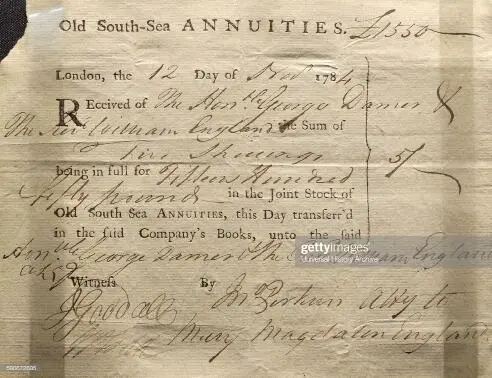 Old South-Sea ANNUITIES. £1550
London, the 12 Day of Nov. 1784
REceived of The Honble George Damer &
The Revd William England the Sum of
Five Shillings 5/
being in full for Fifteen Hundred
Fifty pounds in the Joint Stock of
Old South-Sea ANNUITIES, this Day transferr'd
in the said Company's Books, unto the said
Honble George Damer & The England
Witness By Jno Perkins Atty to
J Goodall Mary Magdalen England
gettyimages
Universal History Archive
590672695